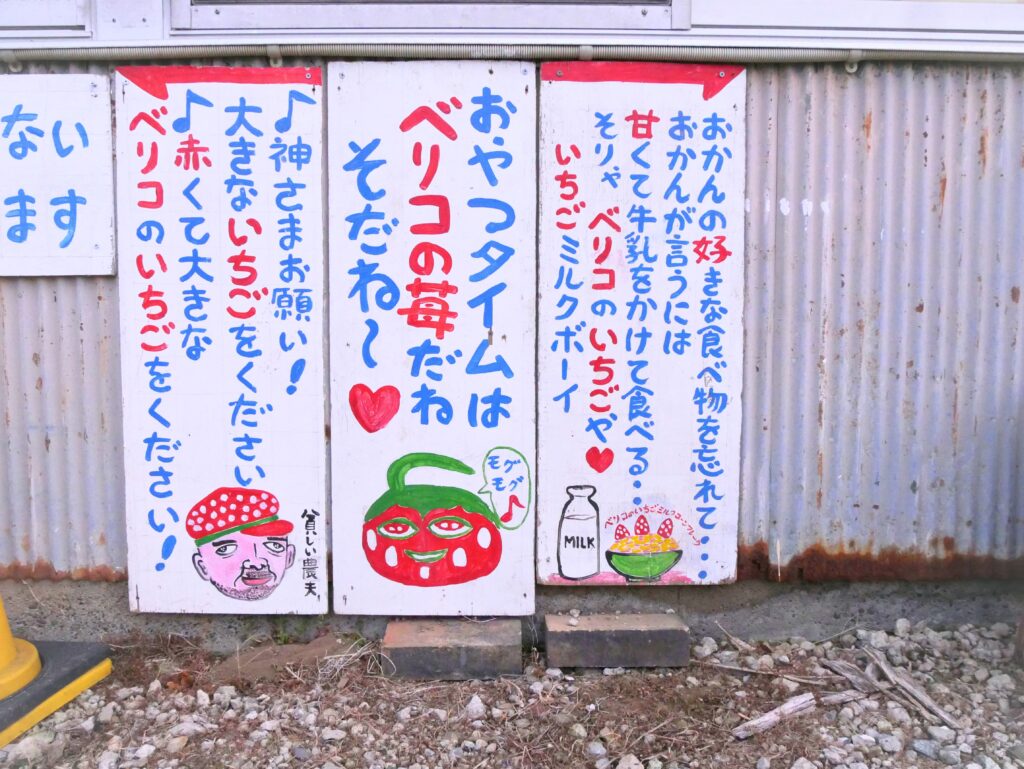 おかんの好きな食べ物を忘れて・・・
おかんが言うには
甘くて牛乳をかけて食べる・・
そりゃ ベリコのいちごや
いちごミルクボーイ
MILK
ベリコのいちごミルクコーンフレーク
おやつタイムは
ベリコの苺だね
そだね〜
モグ
モグ
♪神さまお願い!
大きないちごをください
♪赤くて大きな
ベリコのいちごをください!
貧しい農夫
ない
ます